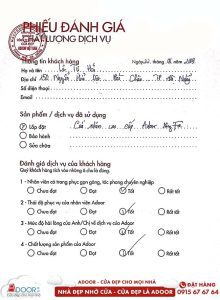 PHIẾU ĐÁNH GIÁ
CHẤT LƯỢNG DỊCH VỤ
Thông tin khách hàng
Ngày
Họ và tên
Địa chỉ 151 Nguyễn
Số điện thoại
Email
Sản phẩm / dịch vụ đã sử dụng
✓ Lắp đặt Cửa cao cấp Adoor
Bảo hành
Sửa chữa
Đánh giá dịch vụ của khách hàng
Quý khách hàng tích vào những ô cho là đúng.
1 - Nhân viên có trang phục gọn gàng, tác phong chuyên nghiệp
Chưa đạt Đạt Tốt Rất tốt
2 - Thái độ phục vụ của nhân viên Adoor
Chưa đạt Đạt Tốt Rất tốt
3 - Mức độ hài lòng của Anh/Chị về dịch vụ của Adoor
Chưa đạt Đạt Tốt Rất tốt
4 - Chất lượng sản phẩm của Adoor
Chưa đạt Đạt Tốt Rất tốt
ADOOR
ADOOR - CỬA ĐẸP CHO MỌI NHÀ
NHÀ ĐẸP NHỜ CỬA - CỬA ĐẸP LÀ ADOOR
ĐẶT HÀNG
0915 67 67 64